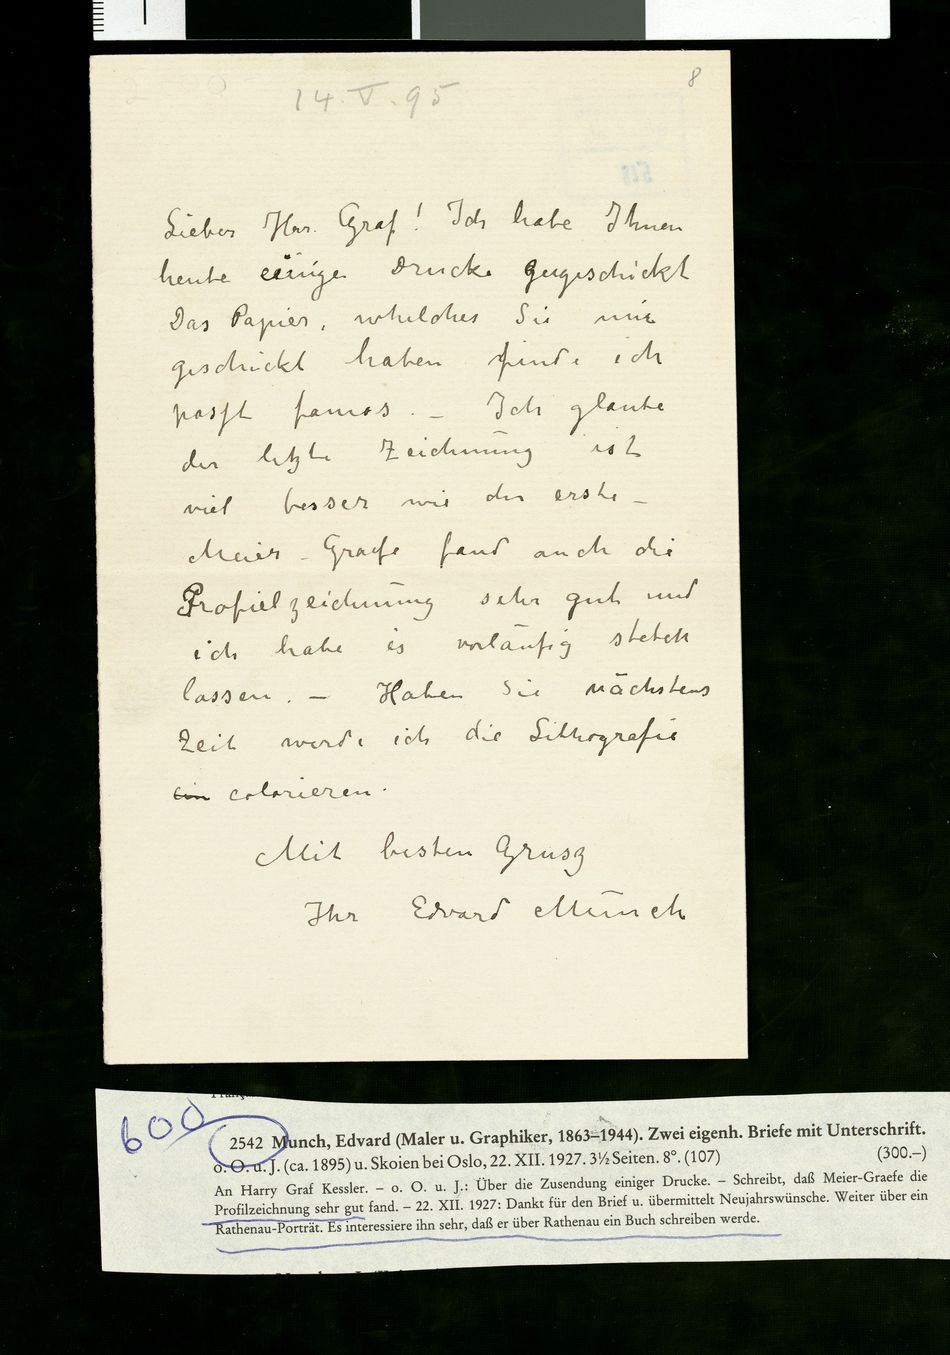 8
14.V.95
Lieber Herr. Graf! Ich habe Ihnen
heute einige Drucke gugeschickt
Das Papier, whelches Sie mir
geschickt haben finde ich
passt famos. – Ich glaube
der letzte Zeichnung ist
viel besser wie der erste –
Meier-Graefe fand auch die
Profielzeichnung sehr gut und
ich habe es vorläufig stehen
lassen. – Haben Sie nächstens
Zeit werde ich die Lithografie
ein colorieren.
Mit besten Grusz
Ihr Edvard Munch
600
2542 Munch, Edvard (Maler u. Graphiker, 1863–1944). Zwei eigenh. Briefe mit Unterschrift.
o. O. u. J. (ca. 1895) u. Skoien bei Oslo, 22. XII. 1927. 3½ Seiten. 8°. (107) (300.–)
An Harry Graf Kessler. – o. O. u. J.: Über die Zusendung einiger Drucke. – Schreibt, daß Meier-Graefe die
Profilzeichnung sehr gut fand. – 22. XII. 1927: Dankt für den Brief u. übermittelt Neujahrswünsche. Weiter über ein
Rathenau-Porträt. Es interessiere ihn sehr, daß er über Rathenau ein Buch schreiben werde.